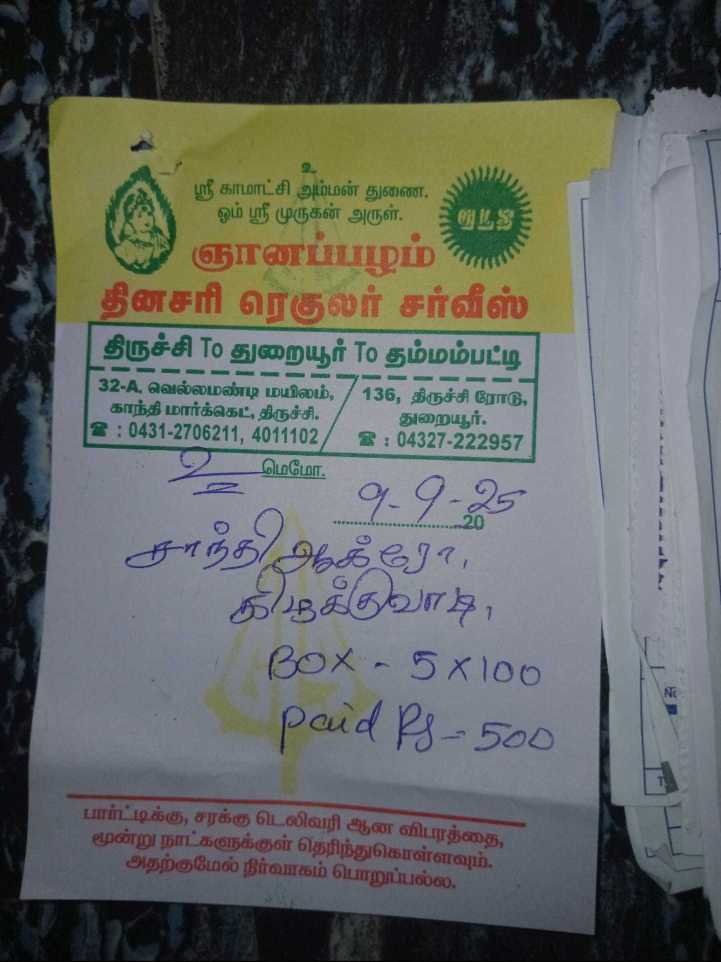 உ
ஸ்ரீ காமாட்சி அம்மன் துணை.
ஓம் ஸ்ரீ முருகன் அருள்.
ஞானப்பழம்
தினசரி ரெகுலர் சர்வீஸ்
திருச்சி To துறையூர் To தம்மம்பட்டி
32-A, வெல்லமண்டி மயிலம்,
காந்தி மார்க்கெட், திருச்சி.
☎ : 0431-2706211, 4011102
136, திருச்சி ரோடு,
துறையூர்.
☎ : 04327-222957
உ
மெமோ.
9-9-25
20
சாந்தி ஆக்ரோ,
கிழக்குவாடி,
BOX - 5 X 100
paid Rs - 500
பார்ட்டிக்கு, சரக்கு டெலிவரி ஆன விபரத்தை,
மூன்று நாட்களுக்குள் தெரிந்துகொள்ளவும்.
அதற்குமேல் நிர்வாகம் பொறுப்பல்ல.